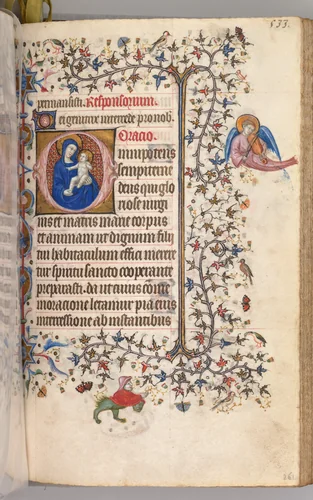 533.
permansisti. Responsorium
Dei genitrix intercede pro nob.
Oracio.
Omnipotens
sempiterne
deus qui glo
riose virgi
nis et matris marie corpus
et animam ut dignum filii
tui habitaculum effici mere
tur spiritu sancto cooperante
preparasti. da ut cuius comme
moracione letamur pia eius
intercessione ab instantibus